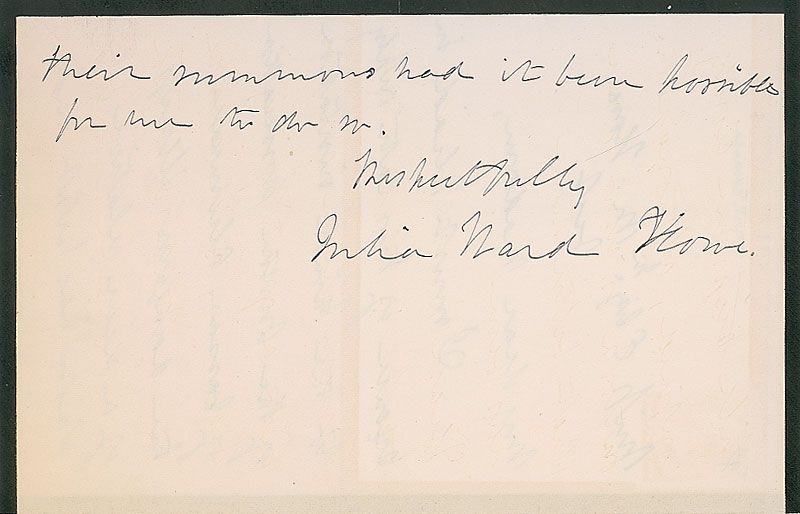 their summons had it been possible
for me to do so.
Respectfully
Julia Ward Howe.